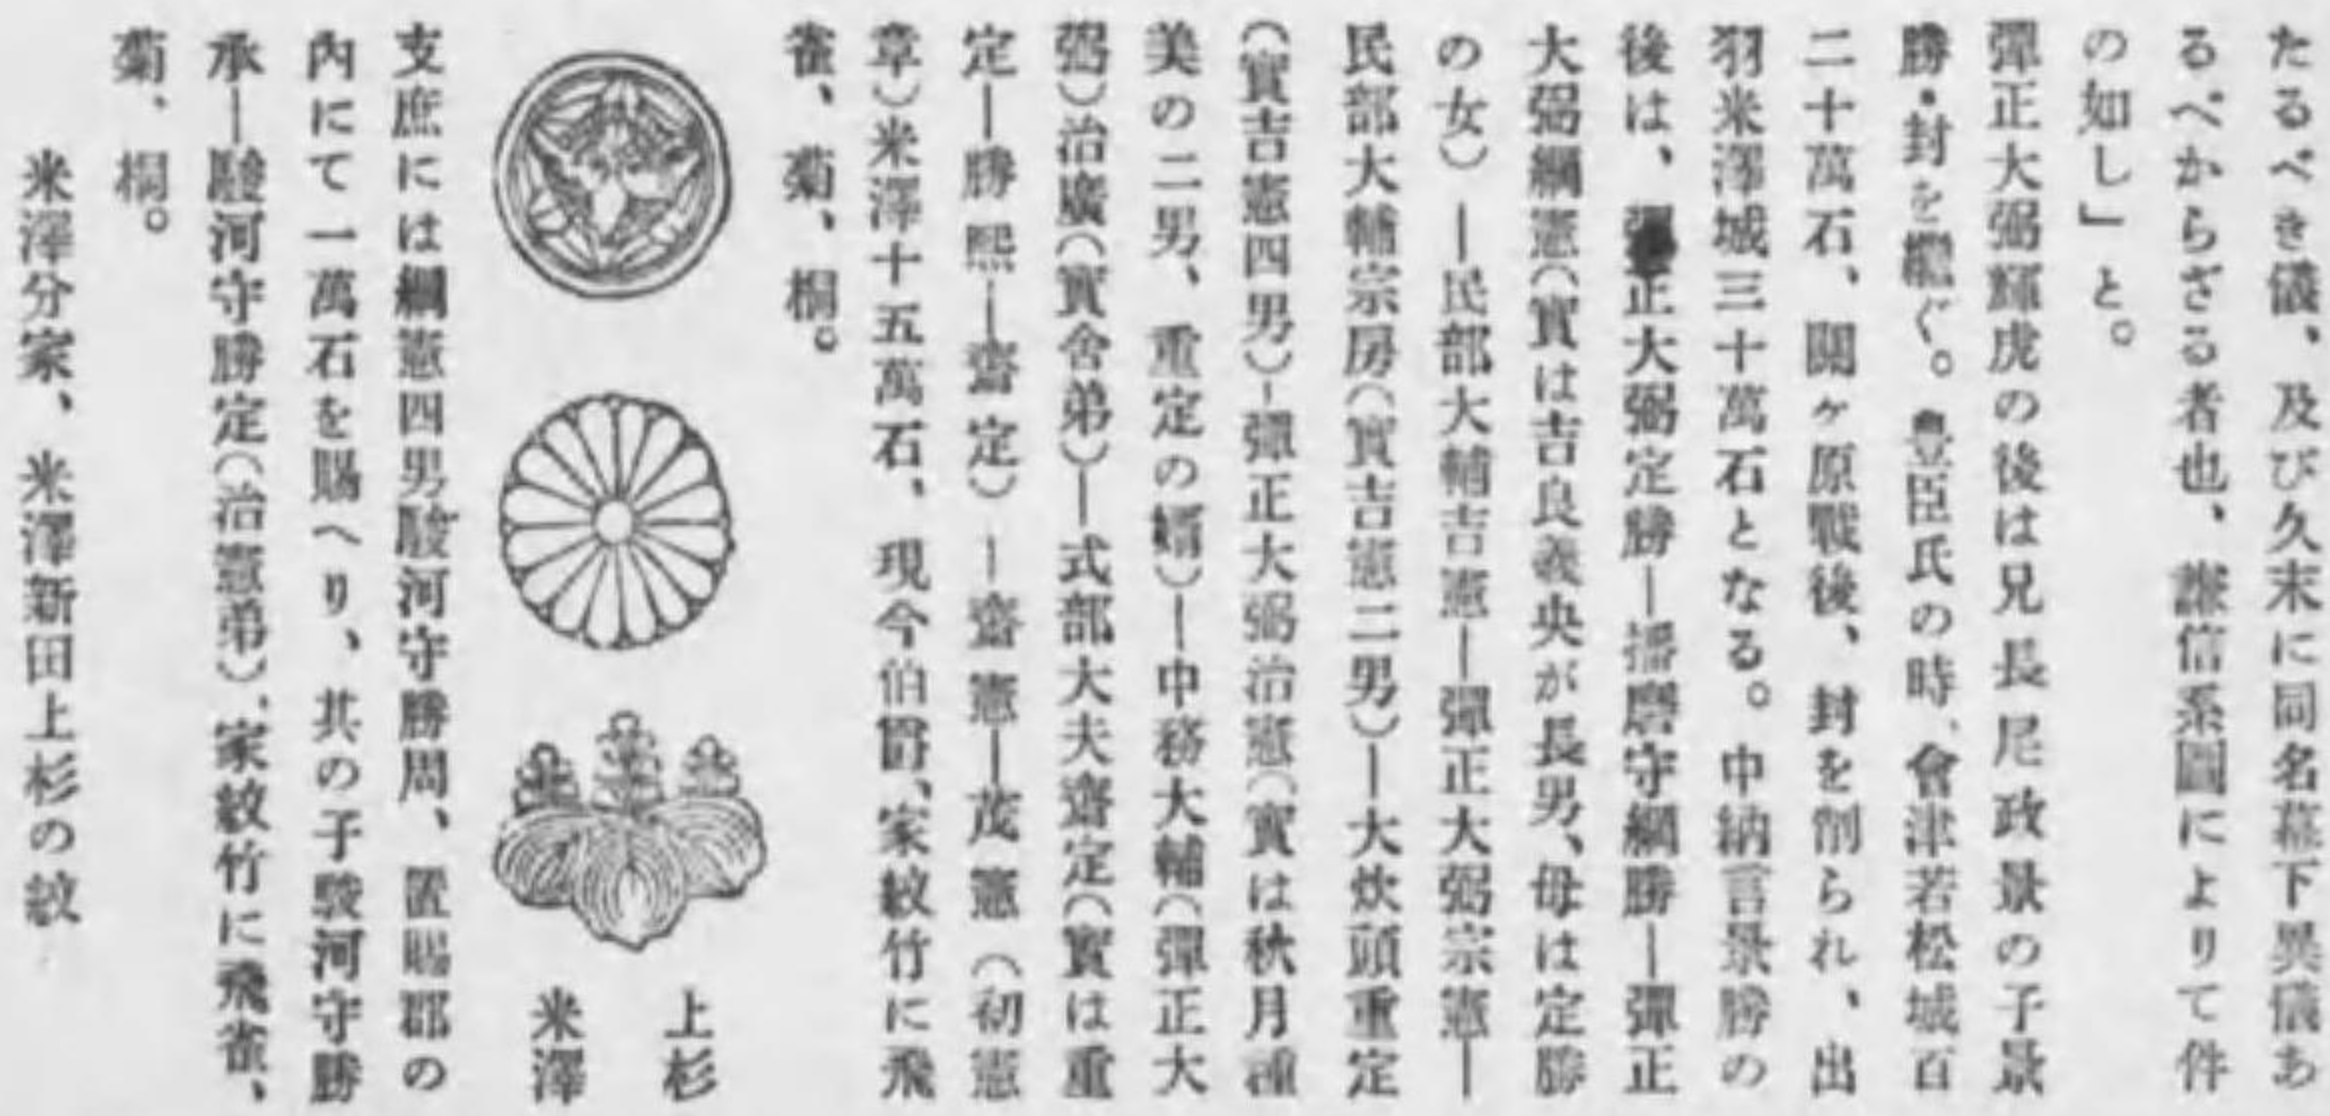 たるべき儀、及び久末に同名幕下異儀あ
るべからざる者也、謙信系圖によりて件
の如し」と。
彈正大弼輝虎の後は兄長尾政景の子景
勝・封を繼ぐ。豊臣氏の時、會津若松城百
二十萬石、關ヶ原戰後、封を削られ、出
羽米澤城三十萬石となる。中納言景勝の
後は、彈正大弼定勝―播磨守綱勝―彈正
大弼綱憲(實は吉良義央が長男、母は定勝
の女)―民部大輔吉憲―彈正大弼宗憲―
民部大輔宗房(實吉憲二男)―大炊頭重定
(實吉憲四男)―彈正大弼治憲(實は秋月種
美の二男、重定の婿)―中務大輔(彈正大
弼)治廣(實舍弟)―式部大夫齋定(實は重
定―勝熙―齋定)―齋憲―茂憲(初憲
章)米澤十五萬石、現今伯爵、家紋竹に飛
雀、菊、桐。
上杉
米澤
支庶には綱憲四男駿河守勝周、置賜郡の
內にて一萬石を賜へり、其の子駿河守勝
承―駿河守勝定(治憲弟)、家紋竹に飛雀、
菊、桐。
米澤分家、米澤新田上杉の紋